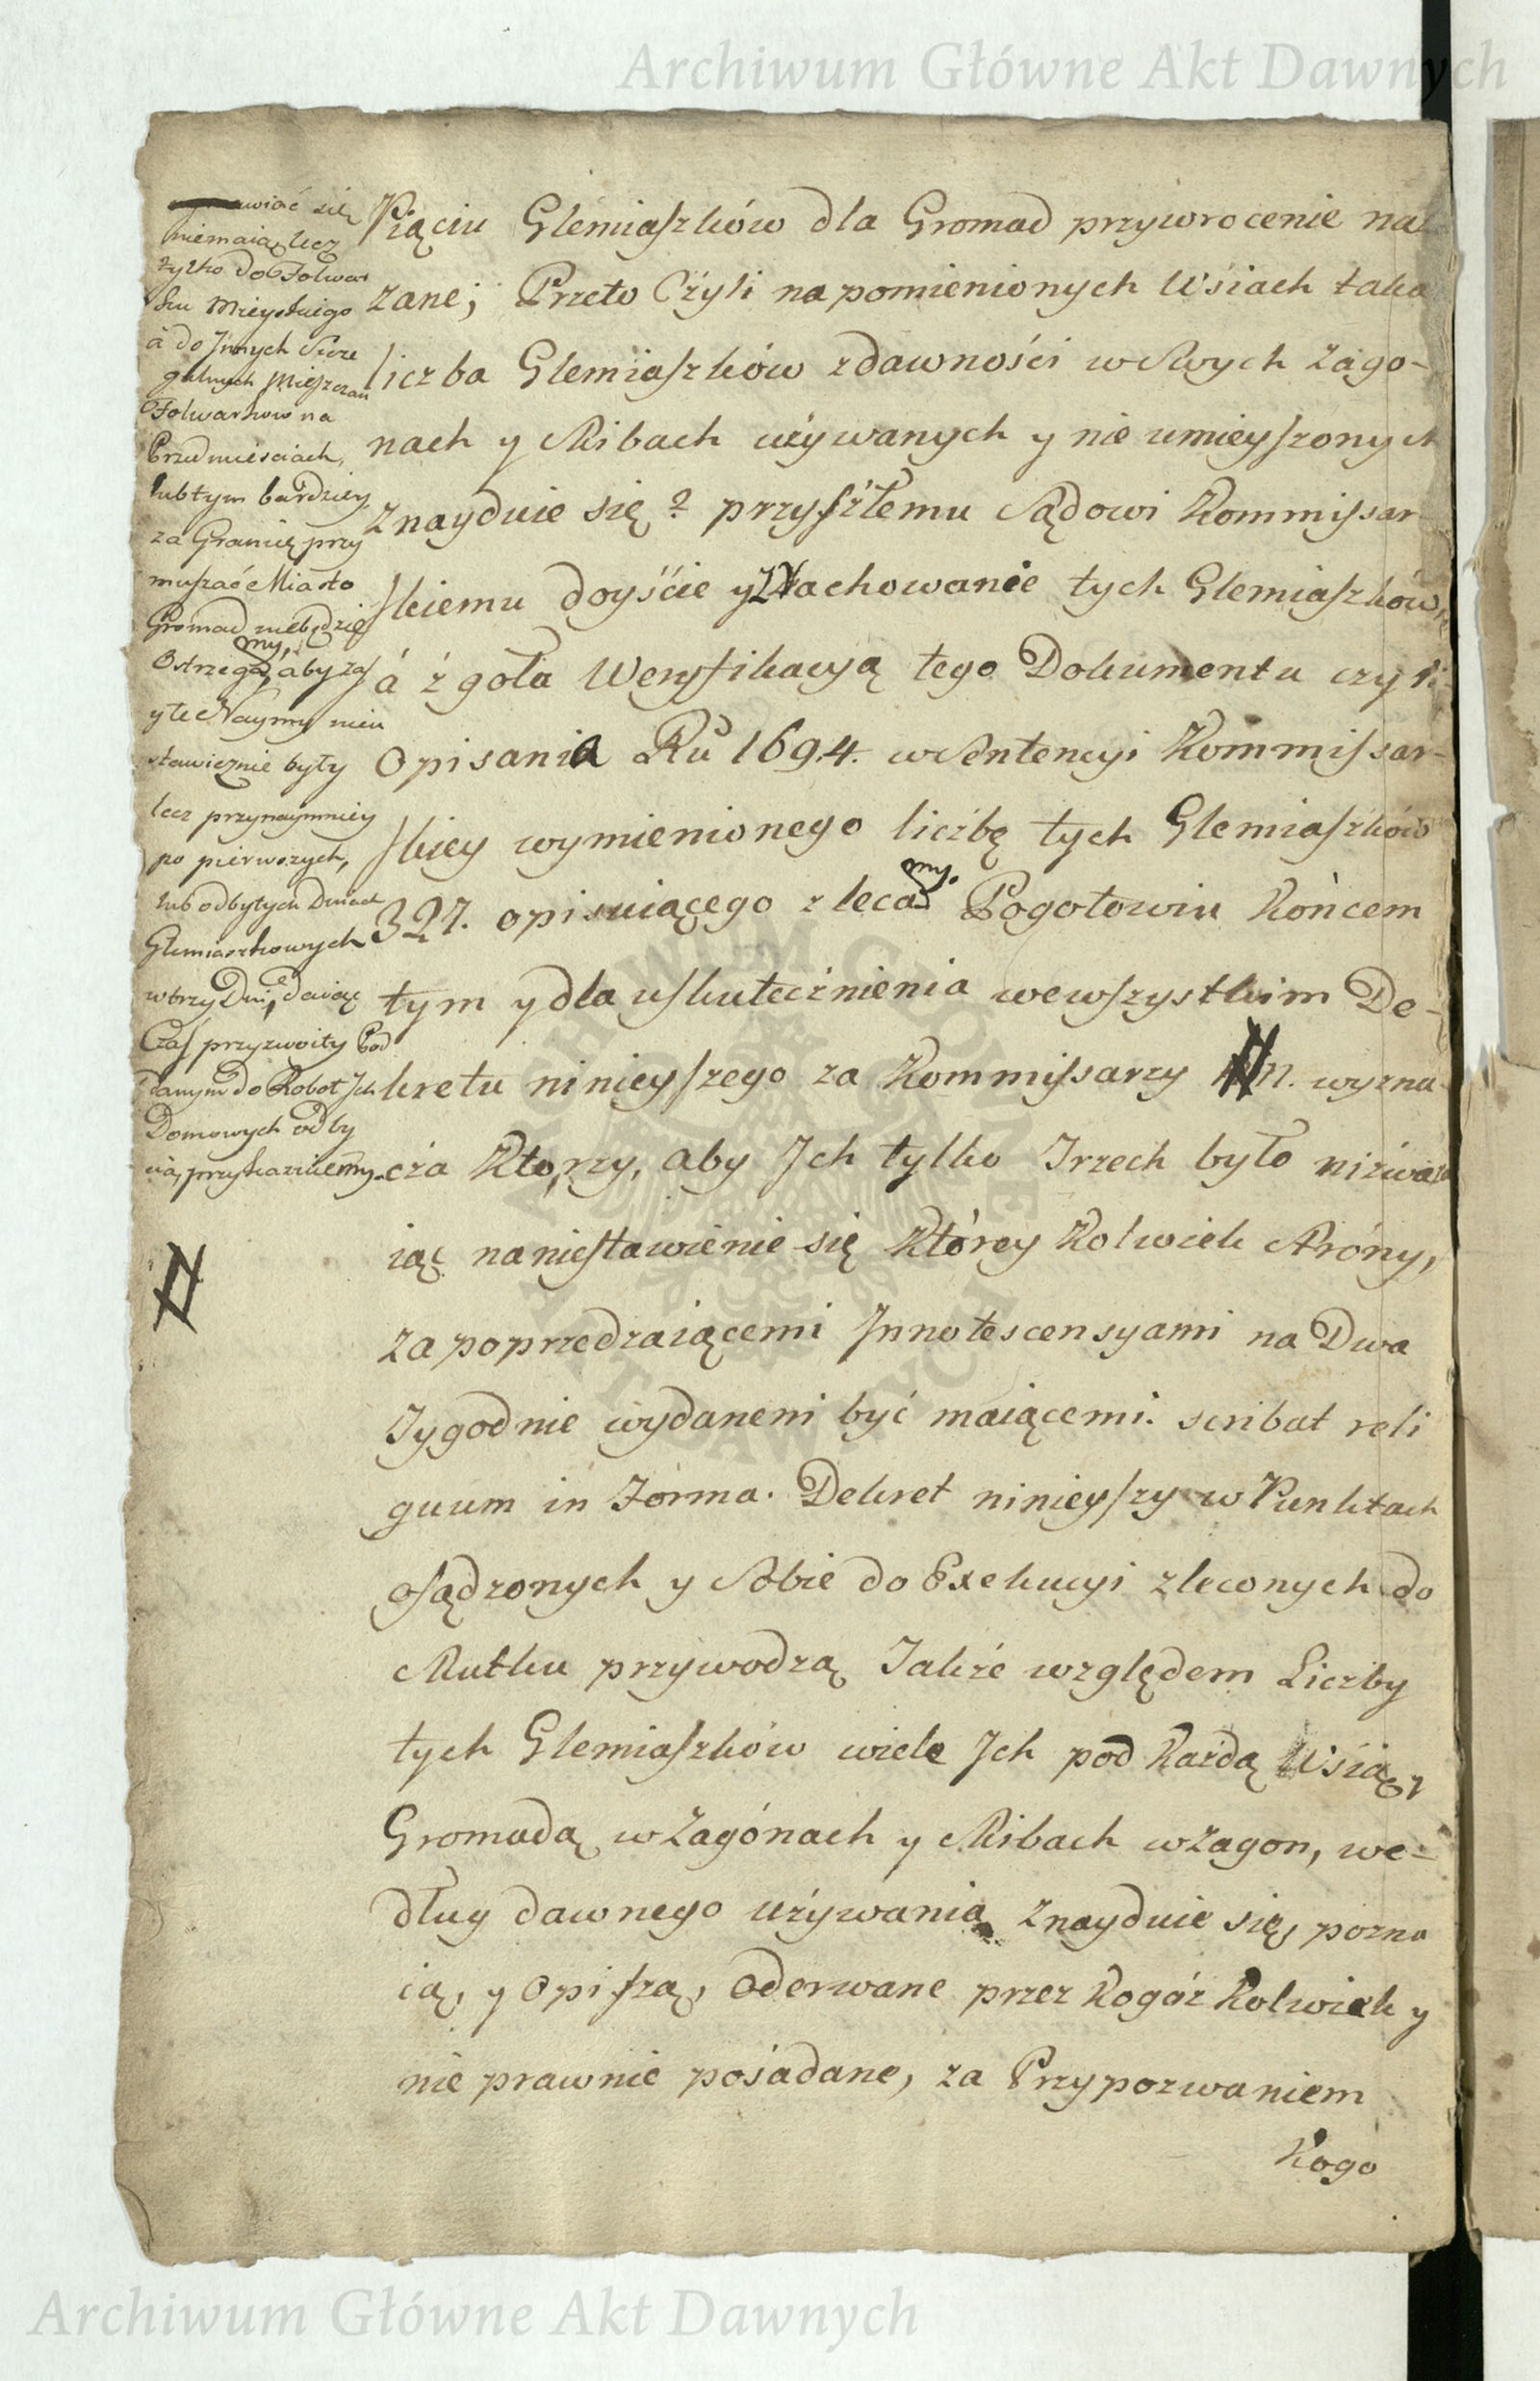 Archiwum Główne Akt Dawnych
wiać się
niemaią, lecz
tylko do Folwar
ku Mieyskiego
à do Jnnych Szcze
gulnych Mieszczan
Folwarkow na
Przedmieściach,
lub tym bardziey
za Granicę przy
muszać Miasto
Gromad niebędzie
my,
Ostrzega, aby zaś
y te Naymy nieu
stawicznie były
lecz przynaymniey
po pierwszych,
lub odbytych Dniach
Glemiaszkowych
w trzy Dni, daiąc
Czas przyzwoity Pod
danym do Robot Jch
Domowych odby
cia, przykazuiemy.
Pięciu Glemiaszków dla Gromad przywrocenie naka
zane; Przeto Czyli na pomienionych Wsiach taka
liczba Glemiaszków zdawności w Swych zago-
nach y Skibach używanych y nie umieyszonych
znayduie się? przyszłemu Sądowi Kommissar-
skiemu doyście y zachowanie tych Glemiaszków,
á zgoła Weryfikacyą tego Dokumentu czyli
Opisania Ru 1694. w Sentencyi Kommissar-
skiey wymienionego liczbę tych Glemiaszków
my.
327. opisuiącego zleca Pogotowiu Końcem
tym y dla uskutecznienia wewszystkim De-
kretu ninieyszego za Kommissarzy N. wyzna
cza Którzy, aby Jch tylko Trzech było nizwa
iąc na niestawienie się Którey Kolwiek Strony,
za poprzedzaiącemi Jnnotescensyami na Dwa
Tygodnie wydanemi być maiącemi. scribat reli
quum in Forma. Dekret ninieyszy w Punktach
osądzonych y Sobie do Exekucyi zleconych do
Skutku przywodzą Jakże względem Liczby
tych Glemiaszków wiele Jch pod Każdą Wsią y
Gromadą w Zagónach y Skibach w Zagon, we-
dług dawnego używania znayduie się, pozna
ią, y Opiszą, Oderwane przez Kogóż Kolwiek y
nie prawnie posiadane, za Przypozwaniem
Kogo
Archiwum Główne Akt Dawnych